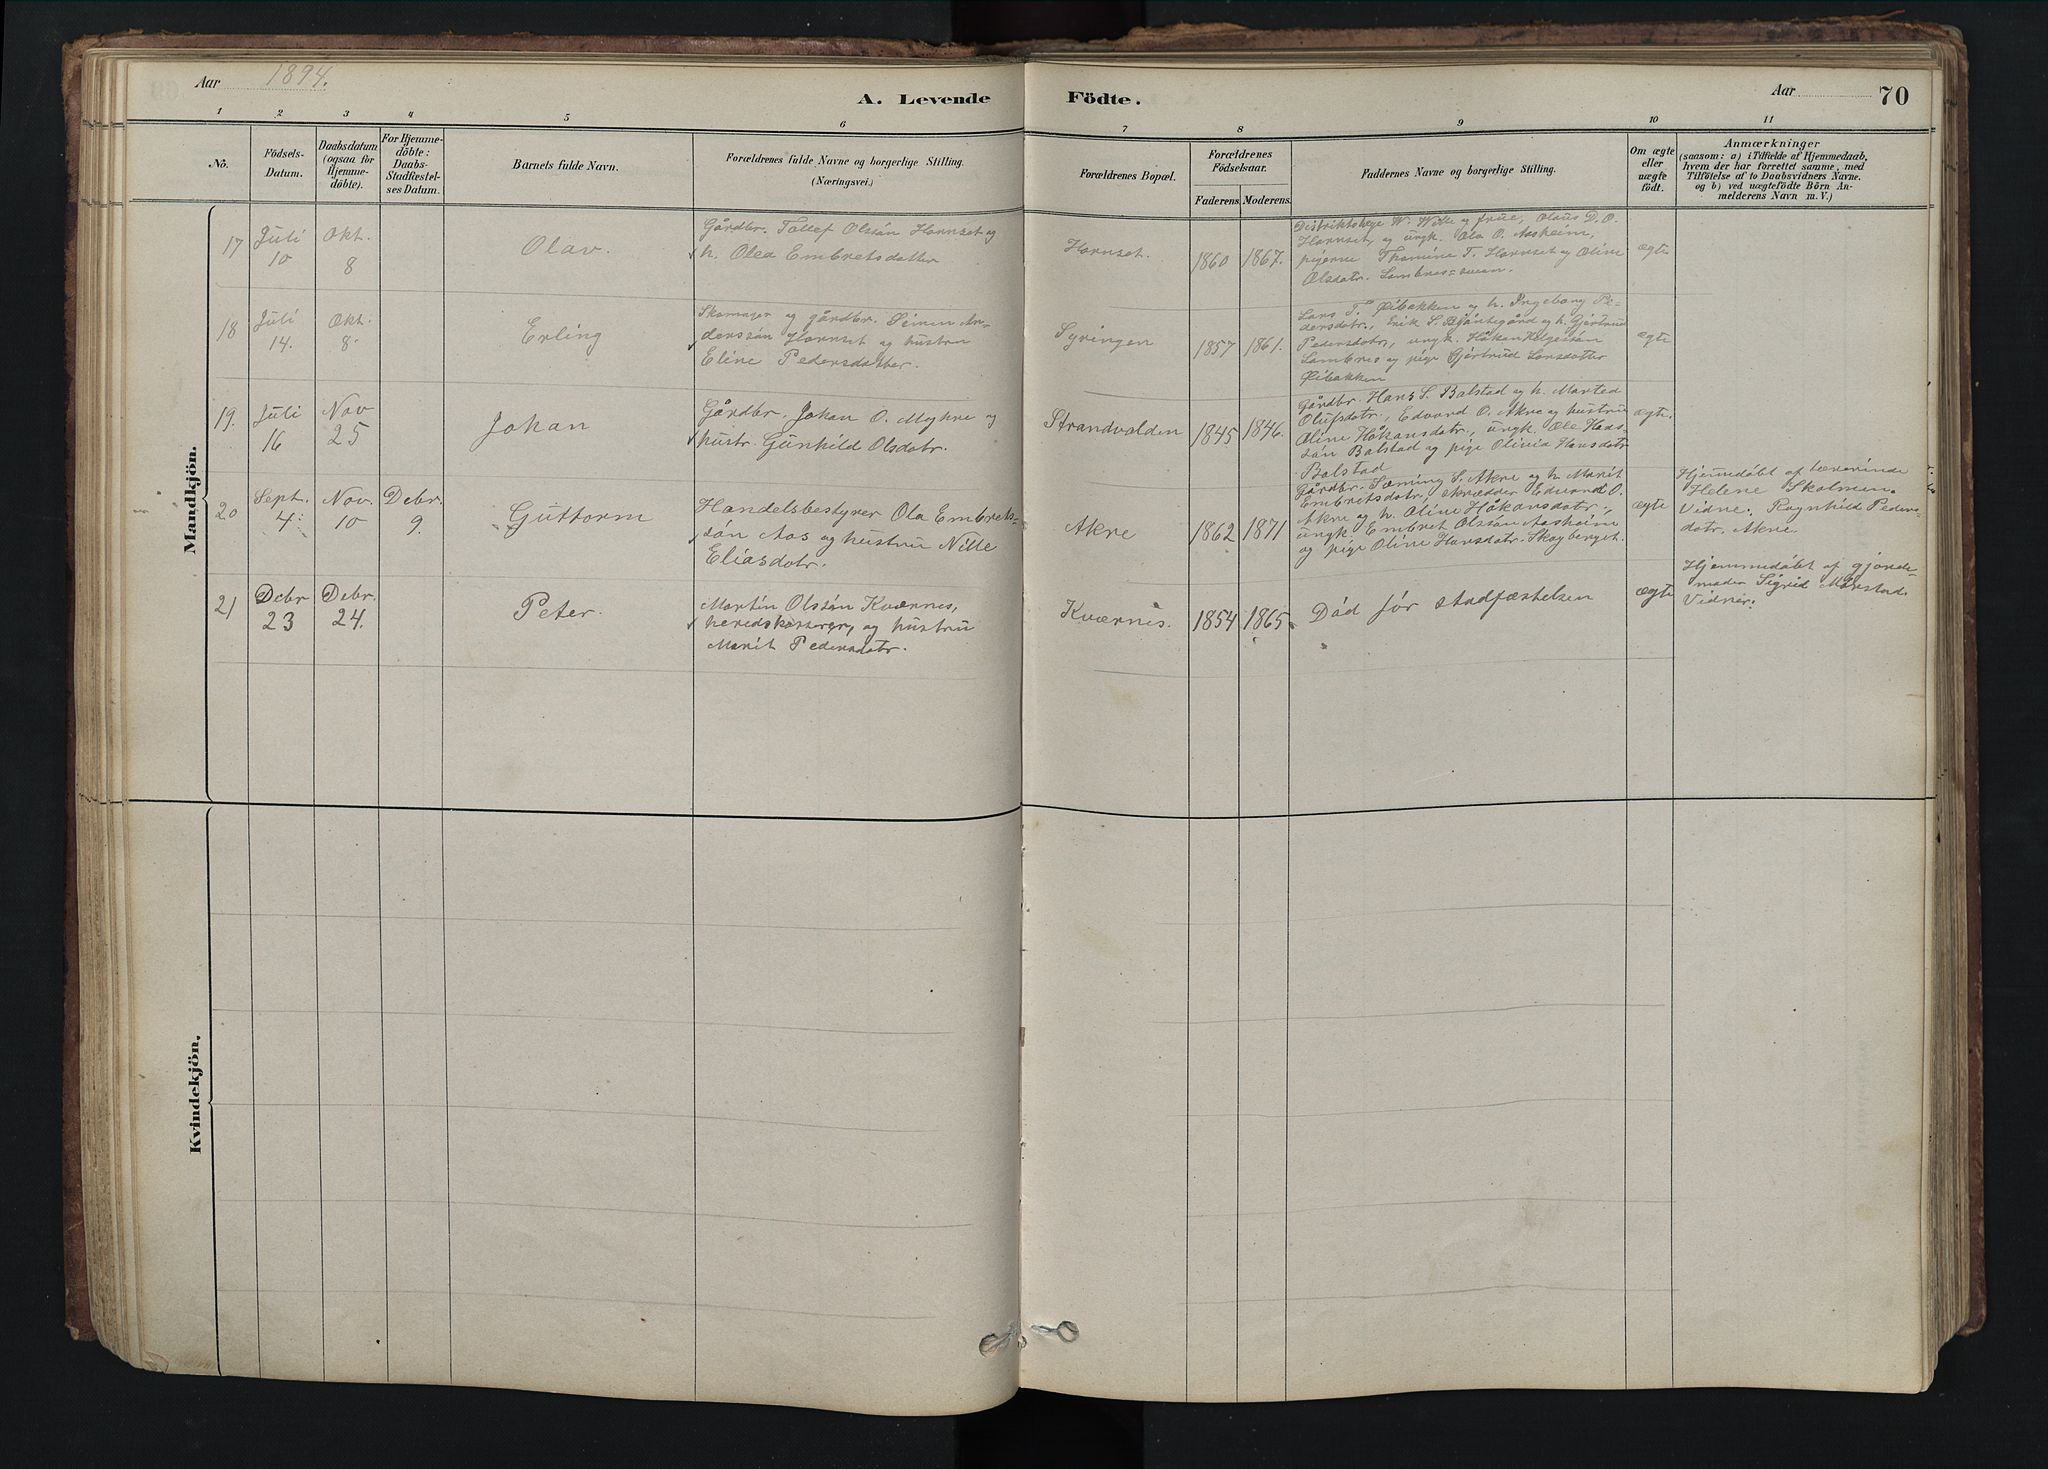 Aar 1894.
A. Levende Födte.
Aar 70
1 2 3 4 5 6 7 8 9 10 11
No.
Födsels-
Datum.
Daabsdatum
(ogsaa for
Hjemme-
döbte).
For Hjemme-
döbte:
Daabs-
Stadfæstel-
ses Datum.
Barnets fulde Navn.
Forældrenes fulde Navne og borgerlige Stilling.
(Næringsvei.)
Forældrenes Bopæl.
Forældrenes
Födselsaar.
Faderens. Moderens.
Faddernes Navne og borgerlige Stilling.
Om ægte
eller
uægte
födt.
Anmærkninger
(saasom: a) i Tilfælde af Hjemmedaab,
hvem der har forrettet samme, med
Tilföielse af to Daabsvidners Navne.
og b) ved uægtefödte Börn An-
melderens Navn m. V.)
Mandkjön.
17
Juli
10
Okt.
8
Olav.
Gårdbr. Tollef Olsön Hornset og
h. Olea Embretsdatter
Hornset.
1860
1867.
Distriktslæge W. Wille og frue, Olaus D. O.
Hornset, og ungk. Ola O. Aasheim,
pigerne Thomine T. Hornset og Oline
Olsdatr.
ægte
18
Juli
14.
Okt.
8.
Erling
Skomager og gårdbr. Simen An-
dersson Hornset og hustru
Eline Pedersdatter.
Syringen
1857
1861.
Lars T. Öibakken og h. Ingeborg Pe-
dersdatr., Erik S. og h. Gjertrud
Pedersdatr., ungk. Håkan Helgesön
Lombnes og pige Gjertrud Larsdotter
Öibakken
ægte
19.
Juli
16
Nov
25
Johan
Gårdbr. Johan O. Myhre og
hustr. Gunhild Olsdatr.
Strandvolden
1845
1846.
Gårdbr. Hans S. Balstad og h. Martea
Olufsdatr., Edvard O. Akre og hustru
Oline Håkansdatr., ungk. Ole Hans-
sön Balstad og pige Olivia Hansdatr
Balstad
ægte.
20
Sept.
4.
Nov.
10
Debr.
9.
Guttorm
Handelsbestyrer Ola Embret-
sön Aas og hustru Nille
Eliasdatr.
Akre
1862
1871
Gårdbr. Sæming S. Akre og h. Marit
Embretsdatr., skrædder Edvard O.
Akre og h. Oline Håkansdatr.,
ungk. Embret Olsön Aasheim
og pige Oline Hansdatr. Skogberget.
ægte
Hjemdöbt af lærerinde
Helene Skolmen.
Vidne: Ragnhild Peders-
datr. Akre.
21
Debr
23
Debr.
24.
Peter.
Martin Olssön Kværnes,
heredskasserer, og hustru
Marit Pedersdatr.
Kværnes.
1854
1865
Död för stadfæstelsen
ægte
Hjemmedöbt af gjorde-
moder Sigrid Morstad.
Vidner:
Kvindekjön.